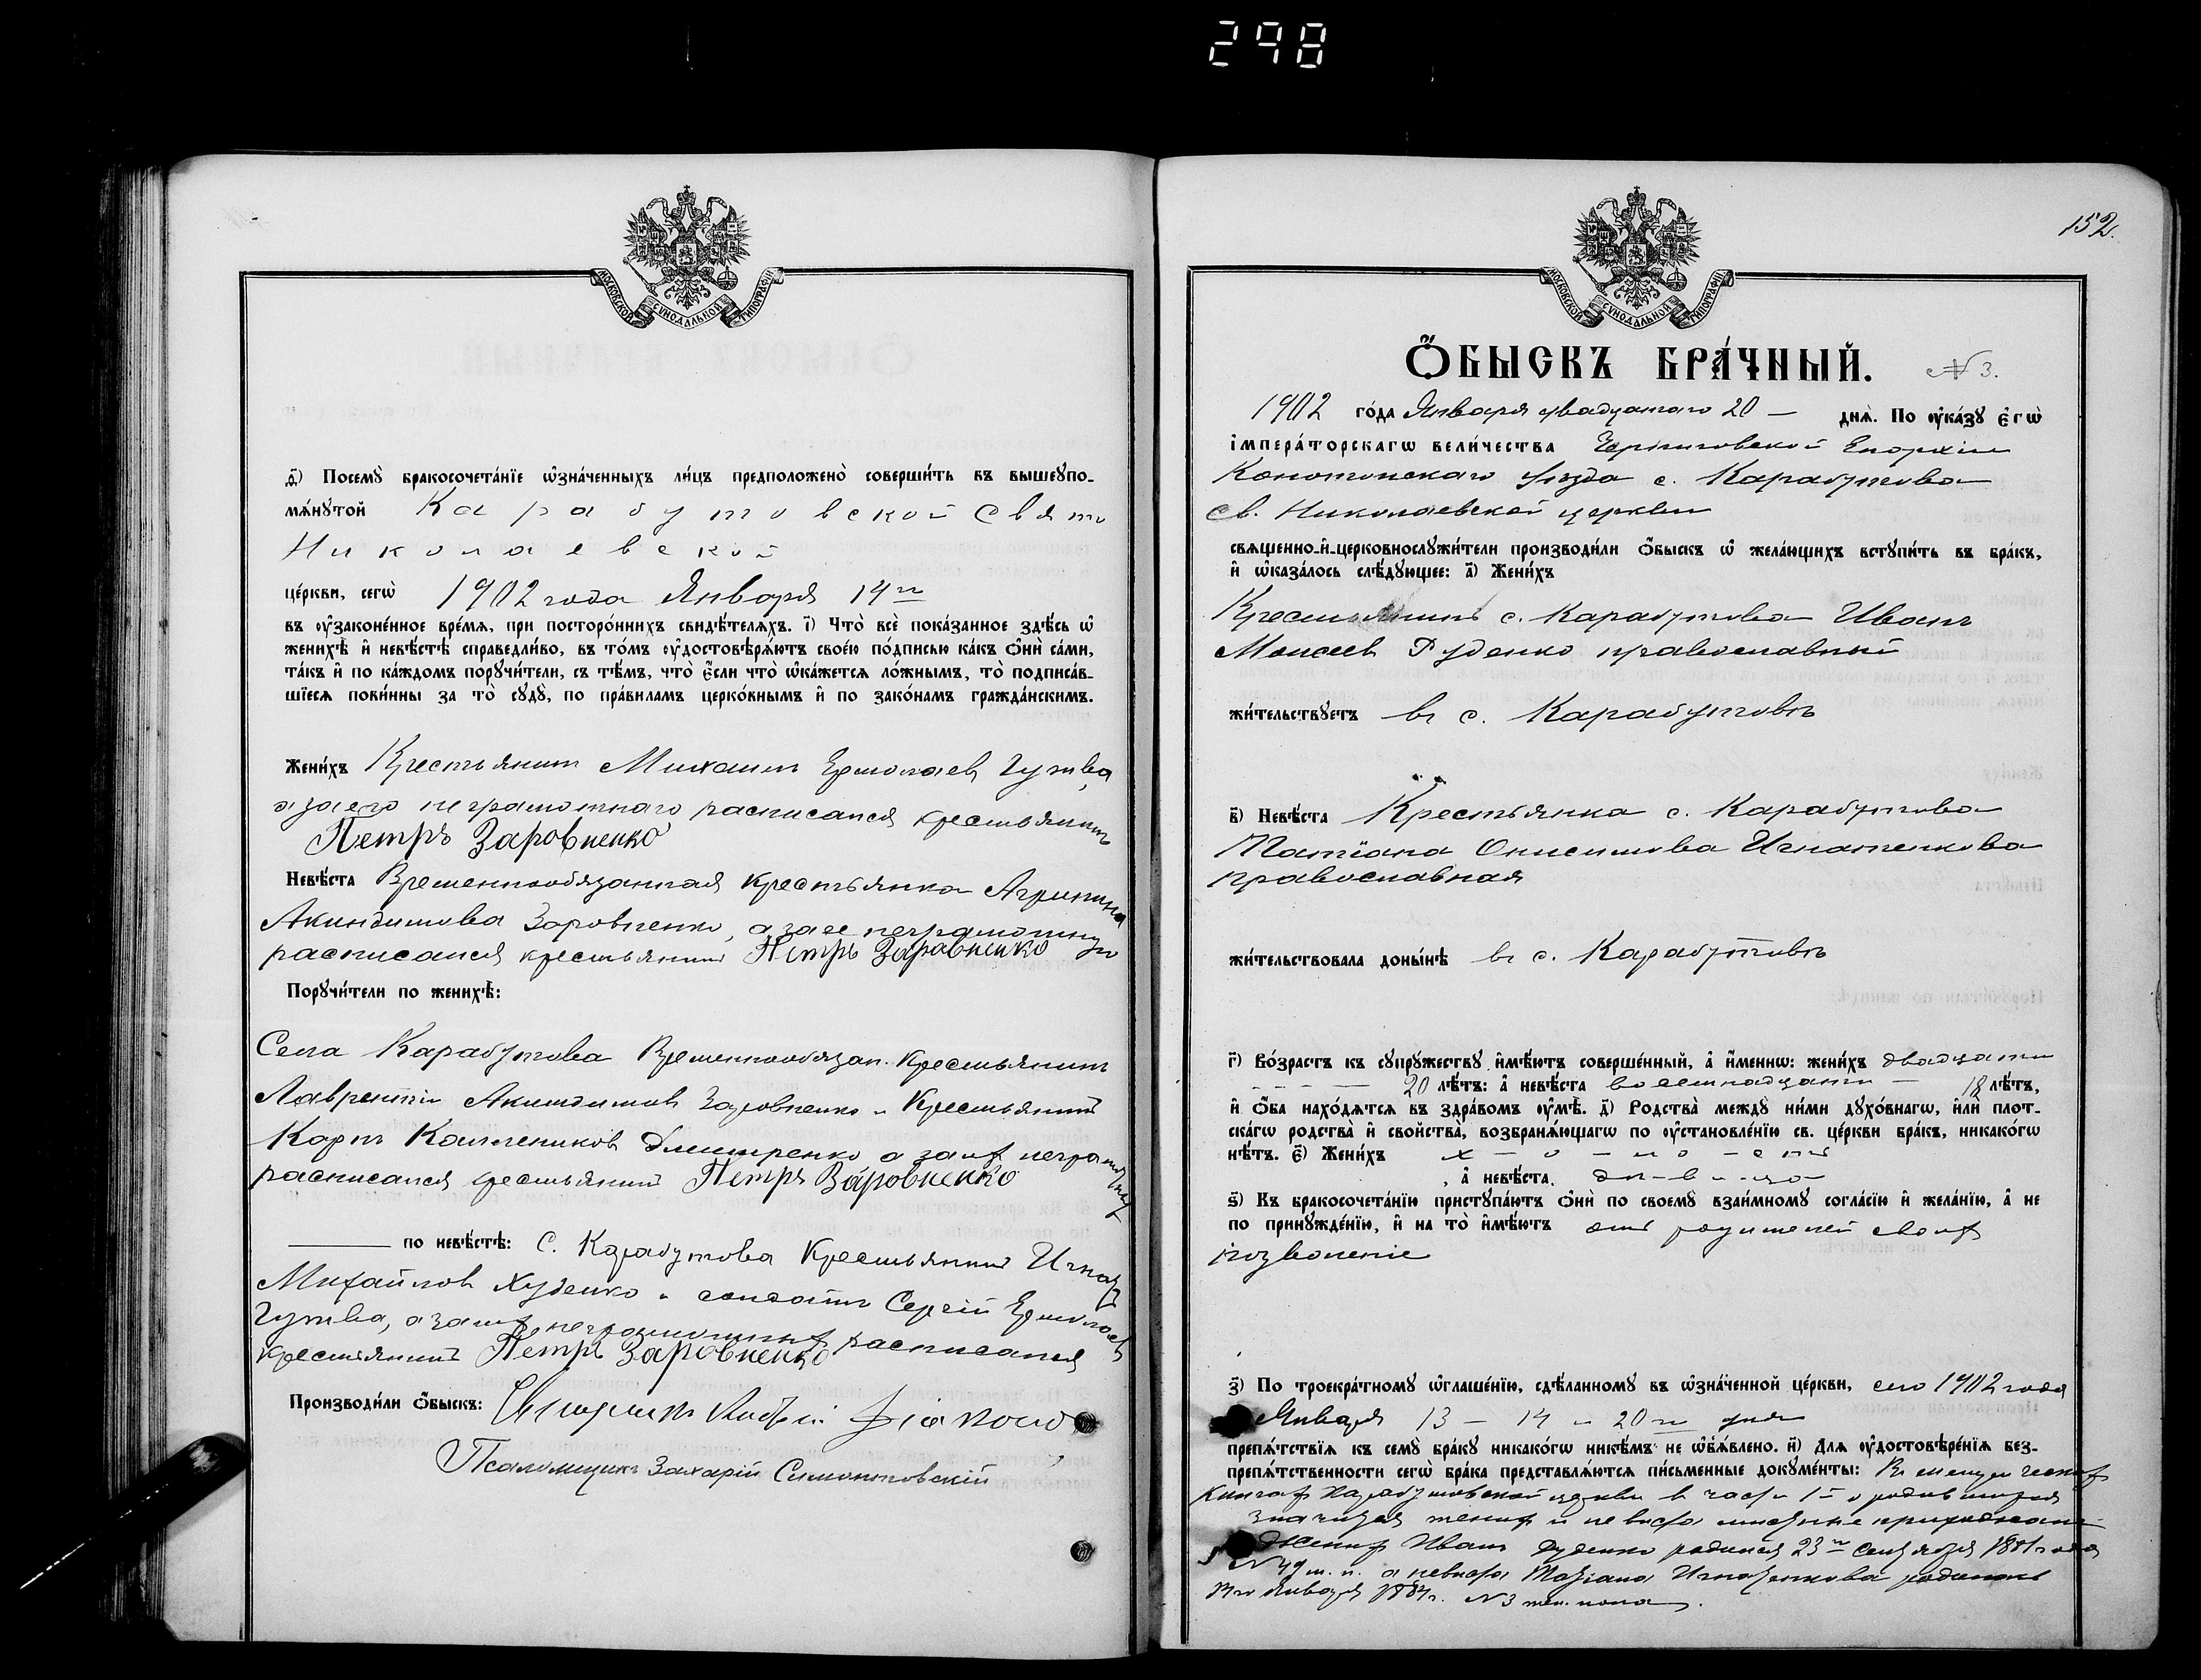 298
МОСКОВСКОЙ СѴНОДАЛЬНОЙ ТИПОГРАФІИ
д҃) Посемꙋ̀ бракосочета́нїе ѡ҆зна́ченныхъ ли́цъ предположено̀ соверши́ть въ вышеꙋпо-
мѧ́нꙋтой Карабутовской Свято
Николаевской
це́ркви, сегѡ̀ 1902 года Января 14го
въ ᲂу҆законе́нное вре́мѧ, при посторо́ннихъ свидѣ́телѧхъ. і҃) Что̀ всѐ пока́занное здѣ́сь ѡ҆
женихѣ̀ и҆ невѣ́стѣ справедли́во, въ то́мъ ᲂу҆достовѣрѧ́ютъ свое́ю по́дписью ка́къ ѻ҆нѝ са́ми,
та́къ и҆ по ка́ждомъ порꙋчи́тели, съ тѣ́мъ, что̀ є҆́сли что̀ ѡ҆ка́жетсѧ ло́жнымъ, то̀ подписа́в-
шїесѧ пови́нны за то̀ сꙋдꙋ̀, по пра́виламъ церко́внымъ и҆ по зако́намъ гражда́нскимъ.
Жени́хъ Крестьянинъ Михаилъ Ермолаевъ Гутва,
а за его неграмотнаго расписался крестьянинъ
Петръ Заровненко
Невѣ́ста Временнообязанная крестьянка Агрипина
Акиндинова Заровненко, а за ее неграмотную
расписался крестьянинъ Петръ Заровненко
Порꙋчи́тели по женихѣ̀:
Села Карабутова Временнообязан. Крестьянинъ
Лаврентій Акиндиновъ Заровненко и Крестьянинъ
Карпъ Калениковъ Дмитренко а за ихъ неграмотныхъ
расписался крестьянинъ Петръ Заровненко
по невѣ́стѣ: С. Карабутова Крестьянинъ Игнатъ
Михайловъ Худенко и солдатъ Сергій Ермолаевъ
Гутва, а за ихъ неграмотныхъ расписался
крестьянинъ Петръ Заровненко
Производи́ли ѻ҆́быскъ: Священникъ
Псаломщикъ Захарій Симоновскій
152.
МОСКОВСКОЙ СѴНОДАЛЬНОЙ ТИПОГРАФІИ
Ѻ҆БЫСКЪ БРА́ЧНЫЙ. № 3.
1902 го́да Января двадцатаго 20 — днѧ̀. По ᲂу҆ка́зꙋ є҆гѡ̀
і҆мпера́торскагѡ вели́чества Черниговской Епархіи
Конотопскаго уѣзда с. Карабутова
Св. Николаевской церкви
свѧщенно-и҆-церковнослꙋжи́тели производи́ли ѻ҆́быскъ ѡ҆ жела́ющихъ встꙋпи́ть въ бра́къ,
и҆ ѡ҆каза́лось слѣ́дꙋющее: а҃) Жени́хъ
Крестьянинъ с. Карабутова Иванъ
Моисеевъ Дуденко православный
жи́тельствꙋетъ въ с. Карабутовѣ
в҃) Невѣ́ста Крестьянка с. Карабутова
Татіана Онисимова Игнатенкова
православная
жи́тельствовала доны́нѣ въ с. Карабутовѣ
г҃) Во́зрастъ къ сꙋпрꙋ́жествꙋ и҆мѣ́ютъ соверше́нный, а҆ и҆́меннѡ: жени́хъ двадцати
20 лѣ́тъ: а҆ невѣ́ста восемнадцати — 18 лѣ́тъ,
и҆ ѻ҆́ба нахо́дѧтсѧ въ здра́вомъ ᲂу҆мѣ̀. д҃) Родства̀ междꙋ̀ ни́ми дꙋхо́внагѡ, и҆лѝ плот-
ска́гѡ родства̀ и҆ свойства̀, возбранѧ́ющагѡ по ᲂу҆становле́нїю св. це́ркви бра́къ, никако́гѡ
нѣ́тъ. є҃) Жени́хъ х - о - ло - стъ
, а҆ невѣ́ста, дѣ-в-и-ца
ѕ҃) Къ бракосочета́нїю пристꙋпа́ютъ ѻ҆нѝ по своемꙋ̀ взаи́мномꙋ согла́сїю и҆ жела́нїю, а҆ не
по принꙋжде́нїю, и҆ на то̀ и҆мѣ́ютъ отъ родителей своихъ
позволеніе
з҃) По троекра́тномꙋ ѡ҆глаше́нїю, сдѣ́ланномꙋ въ ѡ҆зна́ченной це́ркви, сего 1902 года
Января 13 — 14 и 20го дня
препѧ́тствїѧ къ семꙋ̀ бра́кꙋ никако́гѡ никѣ́мъ не ѡ҆б̾ѧ́влено. и҃) Длѧ ᲂу҆достовѣре́нїѧ без-
препѧ́тственности сегѡ̀ бра́ка представлѧ́ютсѧ пи́сьменные докꙋме́нты: Въ метрическихъ
книгахъ Карабутовской церкви в части 1й о родившихся
значатся женихъ и невѣста мѣстные прихожане
Женихъ Иванъ Дуденко родился 23го Сентября 1881 года
№ 49 м. п. а невѣста Татіана Игнатенкова родилась
Января 1884 г. № 3 жен. пола.